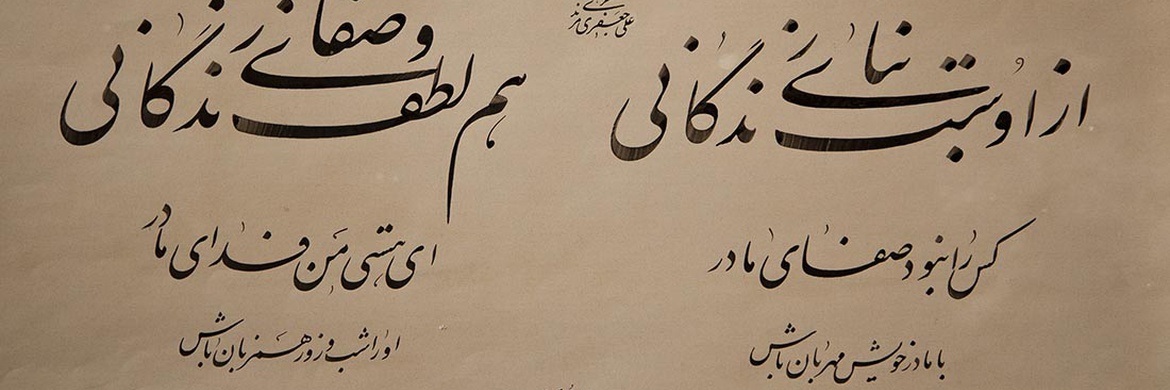 علی جعفری مرند
از اوست بنای زندگانی
هم لطف و صفای زندگانی
کس را نبود صفای مادر
ای هستی من فدای مادر
با مادر خویش مهربان باش
او را شب و روز همزبان باش